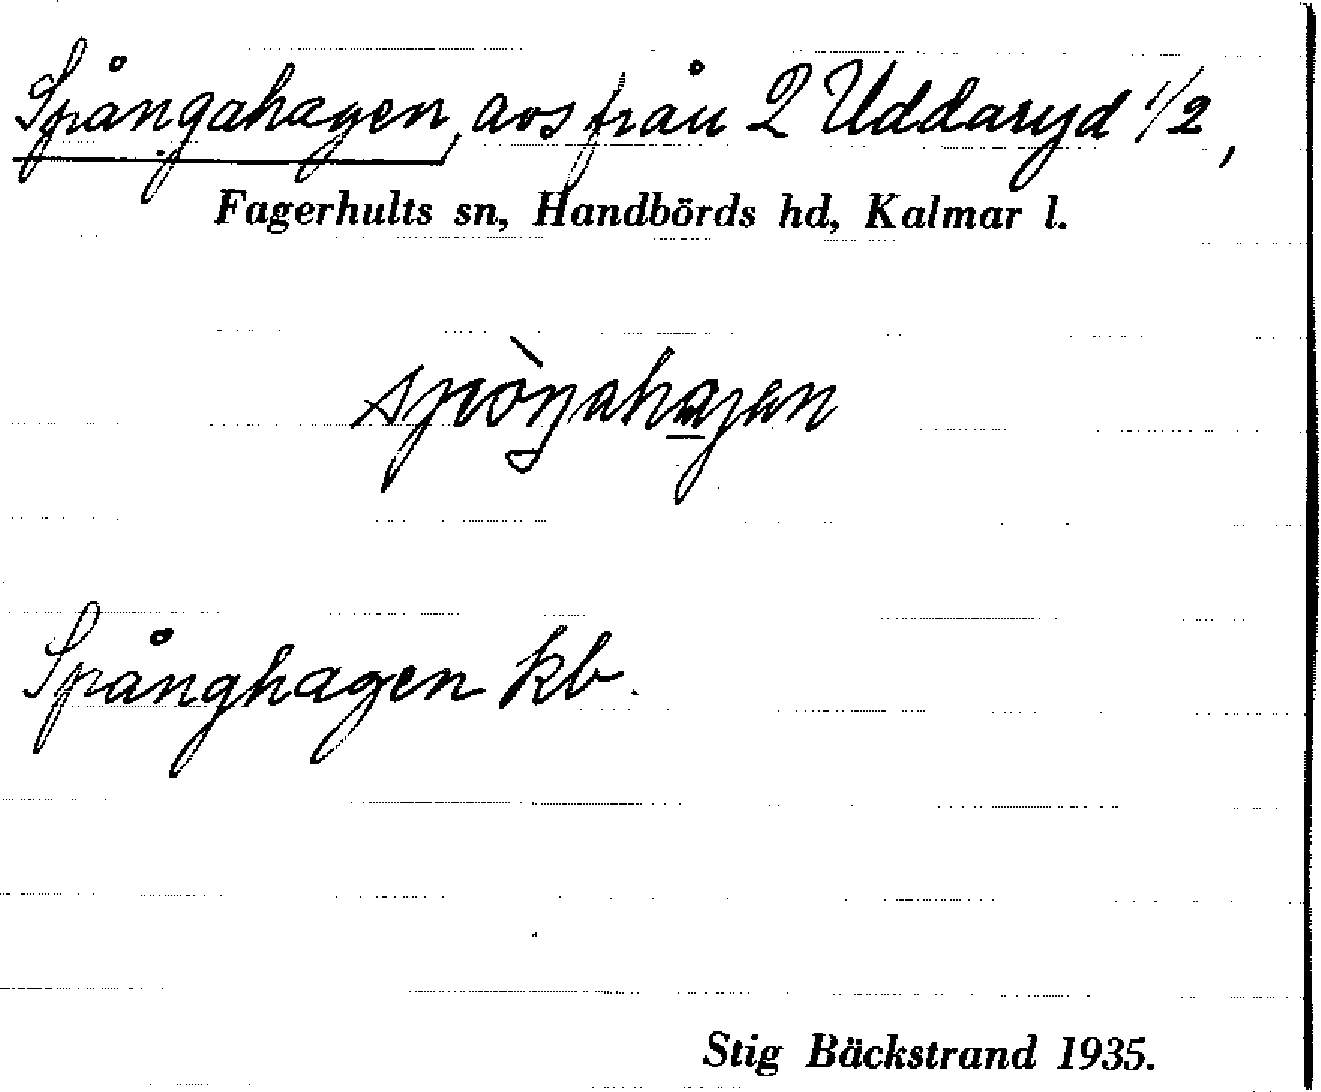 Spångahagen, avs från 2 Uddaryd 1/2,
Fagerhults sn, Handbörds hd, Kalmar l.
spòŋahagan
Spånghagen kb.
Stig Bäckstrand 1935.